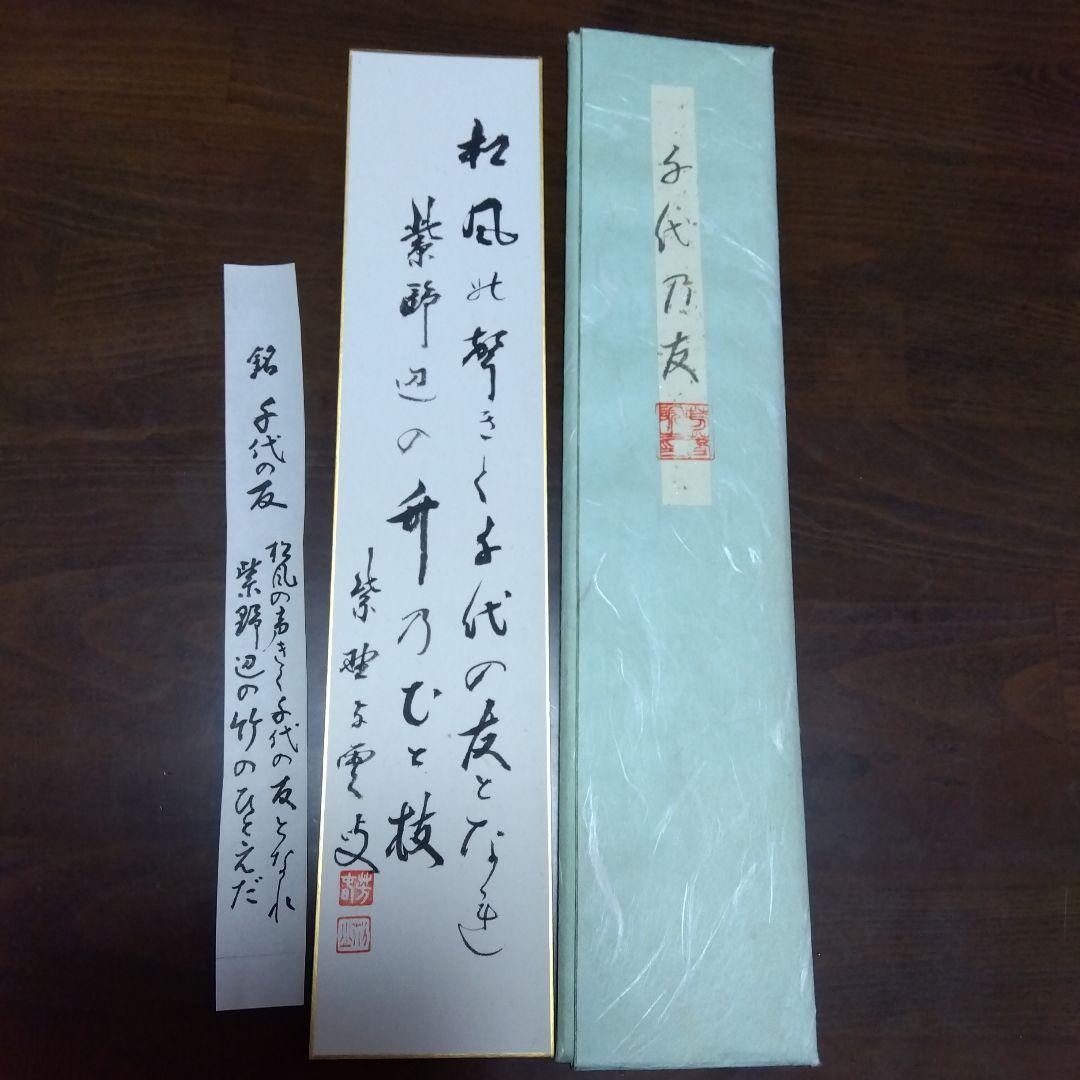 千代乃友
松風の聲きく千代の友となれ
紫野辺の竹乃ひと枝
銘 千代の友
松風の声きく千代の友となれ
紫野辺の竹のひとえだ